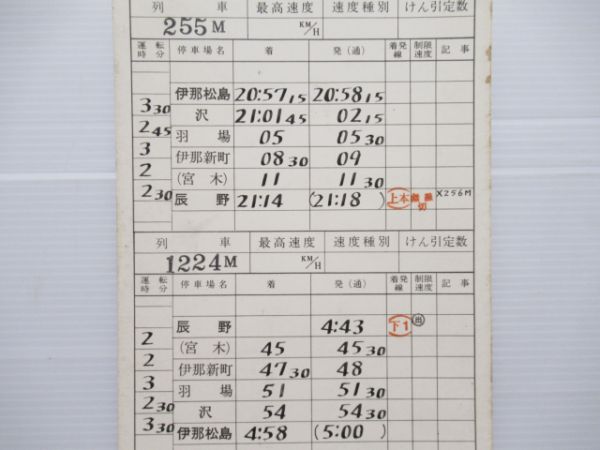 列 車 最高速度 速度種別 けん引定数
255M KM/H
運転時分 停車場名 着 発(通) 着発線 制限速度 記事
伊那松島 20:57 15 20:58 15
3 30
沢 21:01 45 02 15
2 45
羽場 05 05 30
3
伊那新町 08 30 09
2
(宮木) 11 11 30
2 30
辰野 21:14 (21:18) 上本 切 X256M
列 車 最高速度 速度種別 けん引定数
1224M KM/H
運転時分 停車場名 着 発(通) 着発線 制限速度 記事
辰野 4:43 下1 出
2
(宮木) 45 45 30
2
伊那新町 47 30 48
3
羽場 51 51 30
2 30
沢 54 54 30
3 30
伊那松島 4:58 (5:00)